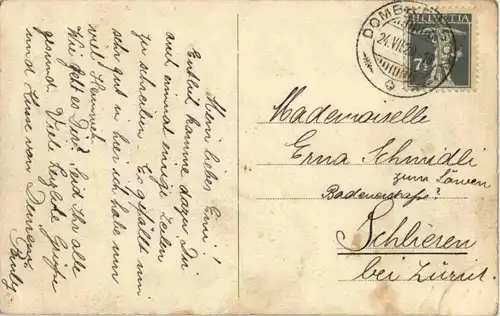 Mein liebes Erni!
Endlich komme dazu Dir
auch einmal einige Zeilen
zu schreiben. Es gefällt mir
sehr gut in hier ich habe nur
viel Heimweh.
Wie geht es Dir? Seid Ihr alle
gesund. Viele herzliche Grüsse
und Küsse von Deinem
HELVETIA
24.VII
7½
Mademoiselle
Erna Schmidli
zum Löwen
Badenerstraße?
Schlieren
bei Zürich